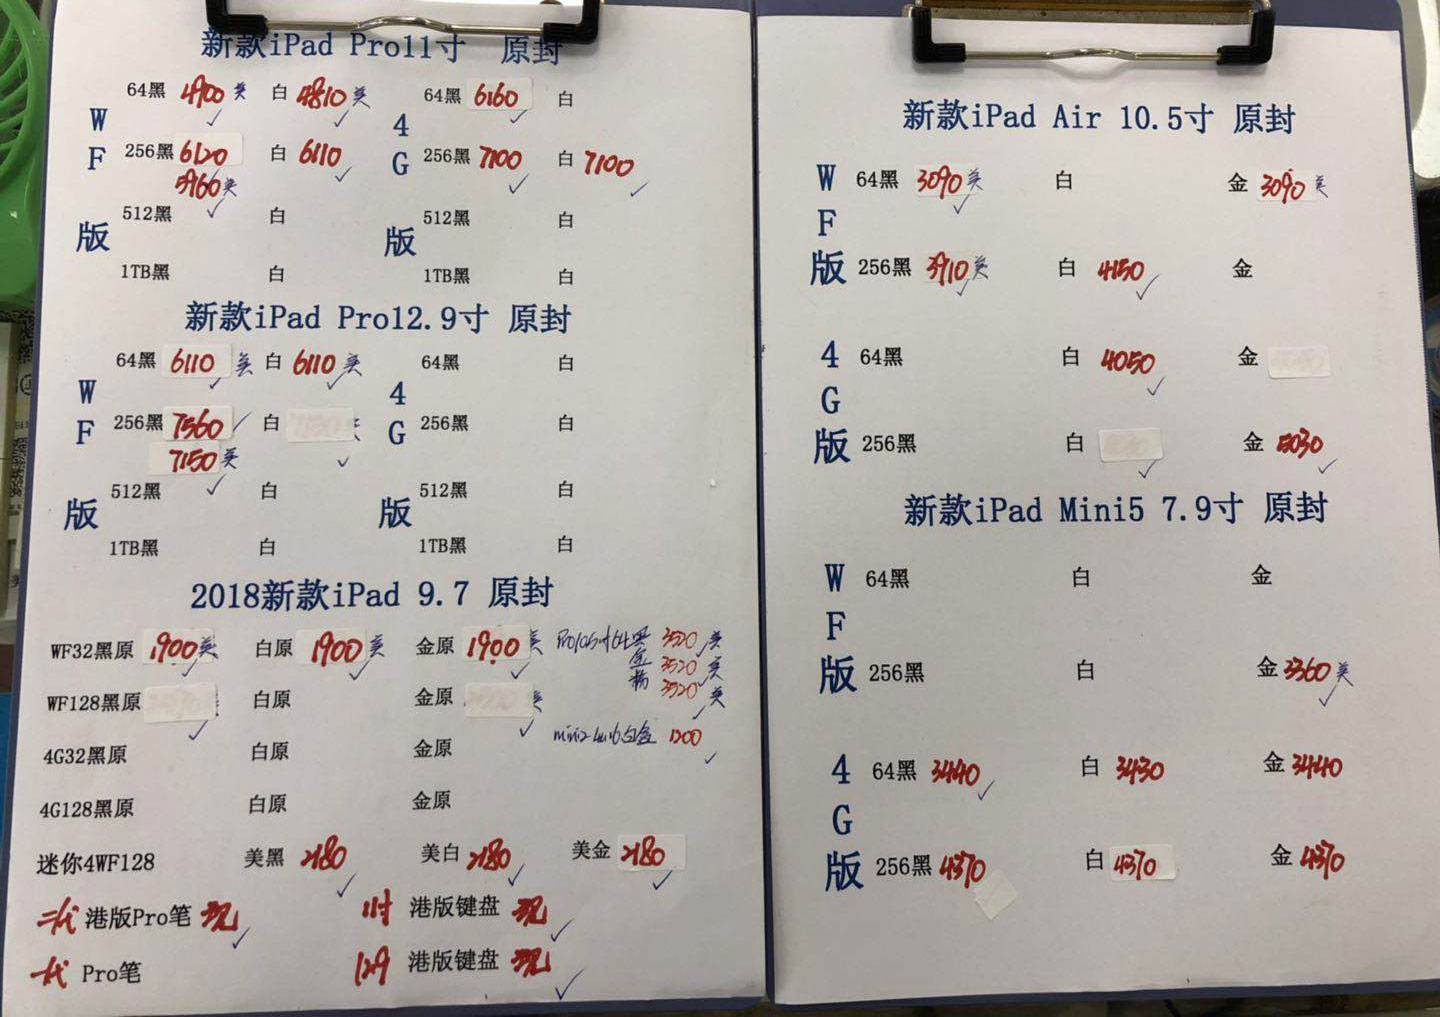 新款iPad Pro11寸 原封
WF版
64黑 4900美 白 4810美
256黑 6120 白 6110
5960美
512黑 白
1TB黑 白
4G版
64黑 6160 白
256黑 7100 白 7100
512黑 白
1TB黑 白
新款iPad Pro12.9寸 原封
WF版
64黑 6110美 白 6110美
256黑 7560 白
7150美
512黑 白
1TB黑 白
4G版
64黑 白
256黑 白
512黑 白
1TB黑 白
2018新款iPad 9.7 原封
WF32黑原 1900美 白原 1900美 金原 1900美
WF128黑原 白原 金原 美
4G32黑原 白原 金原
4G128黑原 白原 金原
迷你4WF128 美黑 2180 美白 2180 美金 2180
二代 港版Pro笔 现 11寸 港版键盘 现
一代 Pro笔 12.9 港版键盘 现
3520美
金 3520美
粉 3520美
1200
新款iPad Air 10.5寸 原封
WF版
64黑 3090美 白 金 3090美
256黑 3910美 白 4150 金
4G版
64黑 白 4050 金
256黑 白 金 5030
新款iPad Mini5 7.9寸 原封
WF版
64黑 白 金
256黑 白 金 3360美
4G版
64黑 3440 白 3430 金 3440
256黑 4370 白 4370 金 4370